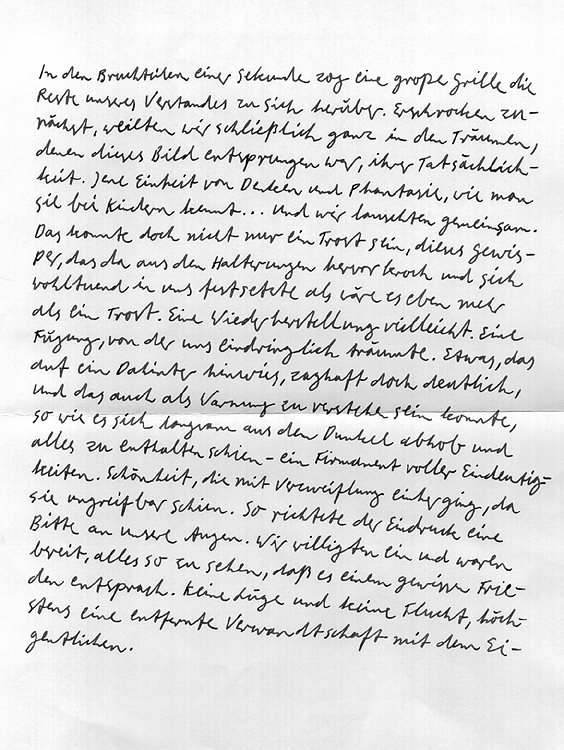 In den Bruchteilen einer Sekunde zog eine große Grille die
Reste unseres Verstandes zu sich herüber. Erschrocken zu-
nächst, weilten wir schließlich ganz in den Träumen,
denen dieses Bild entsprungen war, ihrer Tatsächlich-
keit. Jene Einheit von Denken und Phantasie, wie man
sie bei Kindern kennt... Und wir lauschten gemeinsam.
Das konnte doch nicht nur ein Trost sein, dieses Gewis-
per, das da aus den Halterungen hervorkroch und sich
wohltuend in uns festsetzte als wäre es eben mehr
als ein Trost. Eine Wiederherstellung vielleicht. Eine
Fügung, von der uns eindringlich träumte. Etwas, das
auf ein Dahinter hinwies, zaghaft doch deutlich,
und das auch als Warnung zu verstehen sein konnte,
so wie es sich langsam aus dem Dunkel abhob und
alles zu enthalten schien – ein Firmament voller Eindeutig-
keiten. Schönheit, die mit Verzweiflung einherging, da
sie ungreifbar schien. So richtete der Eindruck eine
Bitte an unsere Augen. Wir willigten ein und waren
bereit, alles so zu sehen, daß es einem gewissen Frie-
den entsprach. Keine Lüge und keine Flucht, höch-
stens eine entfernte Verwandtschaft mit dem Ei-
gentlichen.